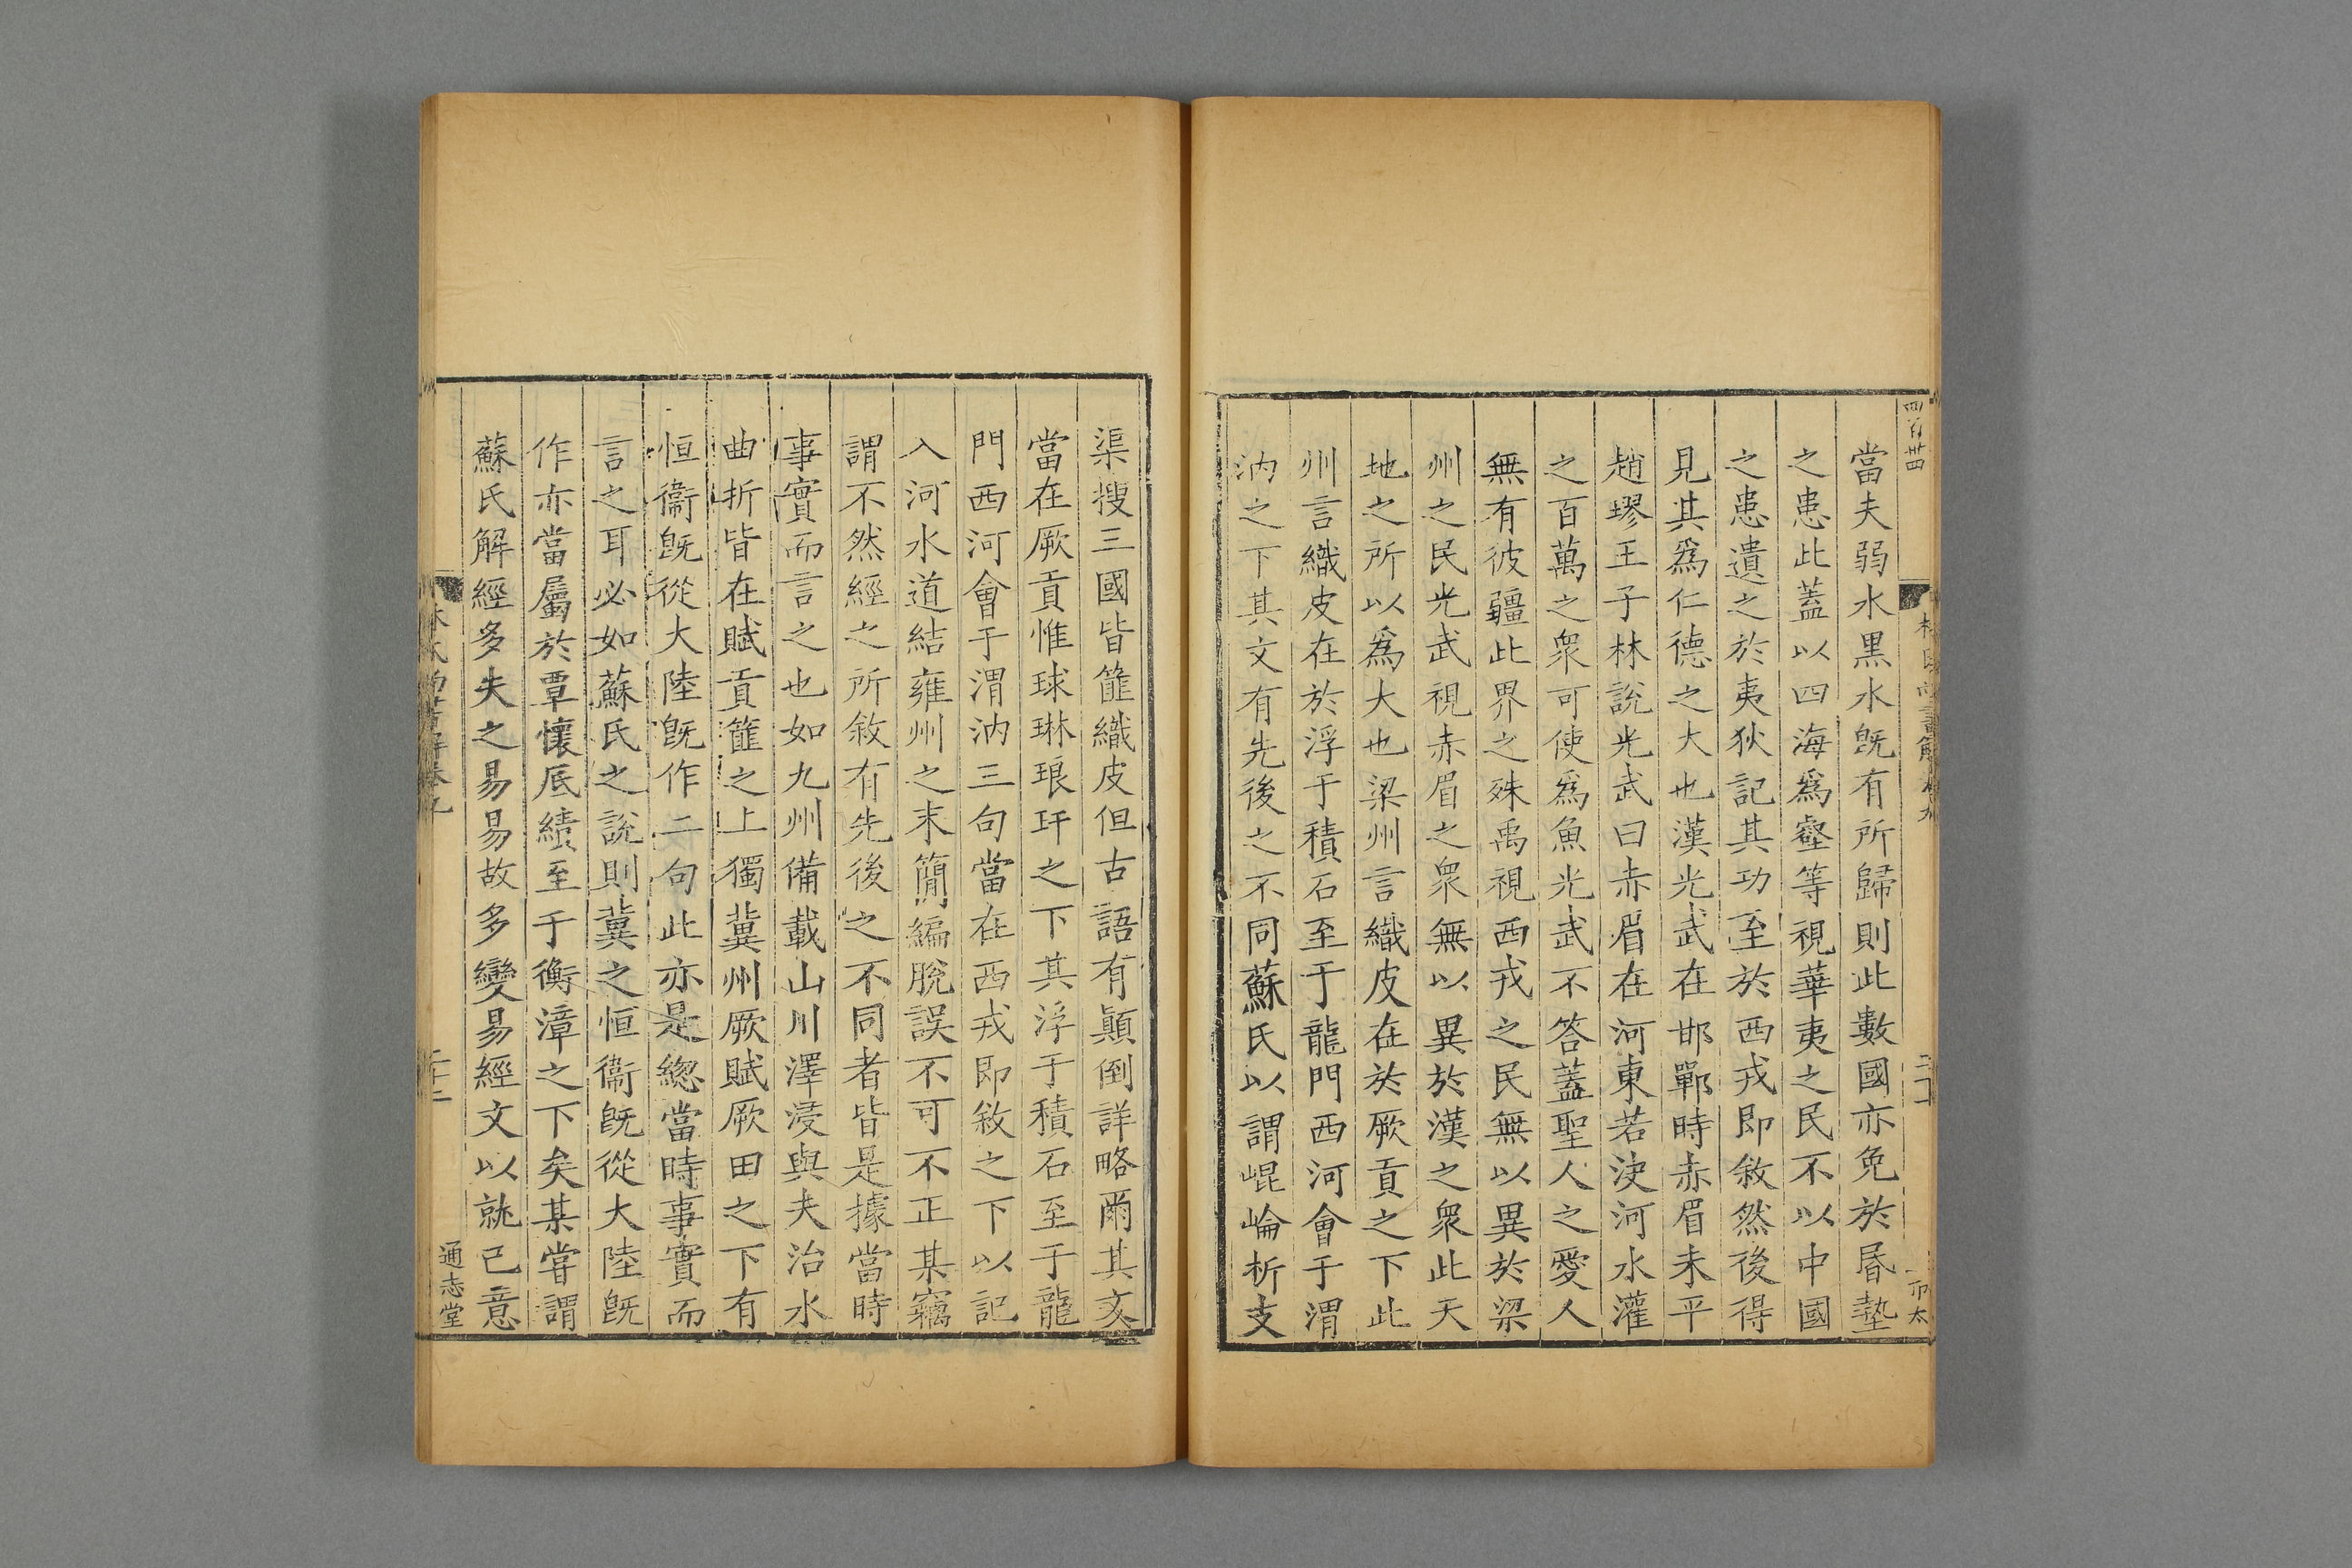 當夫弱水黑水旣有所歸則此數國亦免於昬墊
之患此蓋以四海爲壑等視華夷之民不以中國
之患遺之於夷狄記其功至於西戎即敘然後得
見其爲仁德之大也漢光武在邯鄲時赤眉未平
趙璆王子林說光武曰赤眉在河東若決河水灌
之百萬之衆可使爲魚光武不答蓋聖人之愛人
無有彼疆此界之殊禹視西戎之民無以異於梁
州之民光武視赤眉之衆無以異於漢之衆此天
地之所以爲大也梁州言織皮在於厥貢之下此
州言織皮在於浮于積石至于龍門西河會于渭
汭之下其文有先後之不同蘇氏以謂崐崘析支
渠搜三國皆篚織皮但古語有顛倒詳略爾其文
當在厥貢惟球琳琅玕之下其浮于積石至于龍
門西河會于渭汭三句當在西戎即敘之下以記
入河水道結雍州之末簡編脫誤不可不正某竊
謂不然經之所敘有先後之不同者皆是據當時
事實而言之也如九州備載山川澤浸與夫治水
曲折皆在賦貢篚之上獨冀州厥賦厥田之下有
恒衞旣從大陸旣作二句此亦是總當時事實而
言之耳必如蘇氏之說則冀之恒衞旣從大陸旣
作亦當屬於覃懷厎績至于衡漳之下矣某嘗謂
蘇氏解經多失之易易故多變易經文以就已意
通志堂